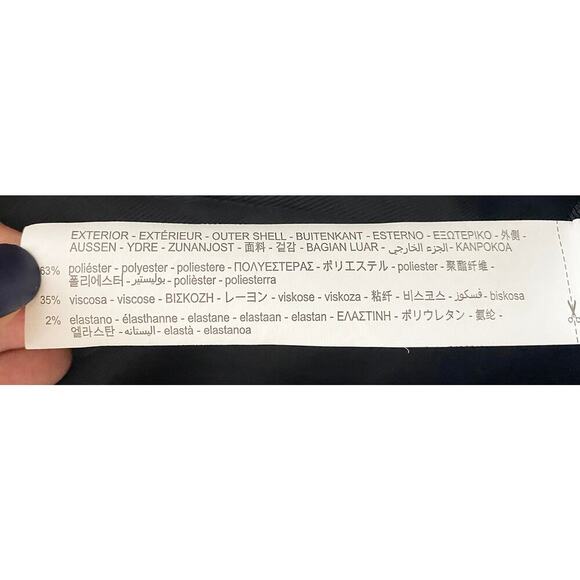 EXTERIOR - EXTÉRIEUR - OUTER SHELL - BUITENKANT - ESTERNO - ΕΞΩΤΕΡΙΚΟ - 外側 -
AUSSEN - YDRE - ZUNANJOST - 面料 - 겉감 - BAGIAN LUAR - الجزء الخارجي - KANPOKOA
63% poliéster - polyester - poliestere - ΠΟΛΥΕΣΤΕΡΑΣ - ポリエステル - poliester - 聚酯纤维 -
폴리에스터 - بوليستير - polièster - poliesterra
35% viscosa - viscose - ΒΙΣΚΟΖΗ - レーヨン - viskose - viskoza - 粘纤 - 비스코스 - فسكوز - biskosa
2% elastano - élasthanne - elastane - elastaan - elastan - ΕΛΑΣΤΙΝΗ - ポリウレタン - 氨纶 -
엘라스탄 - اليستانه - elastà - elastanoa